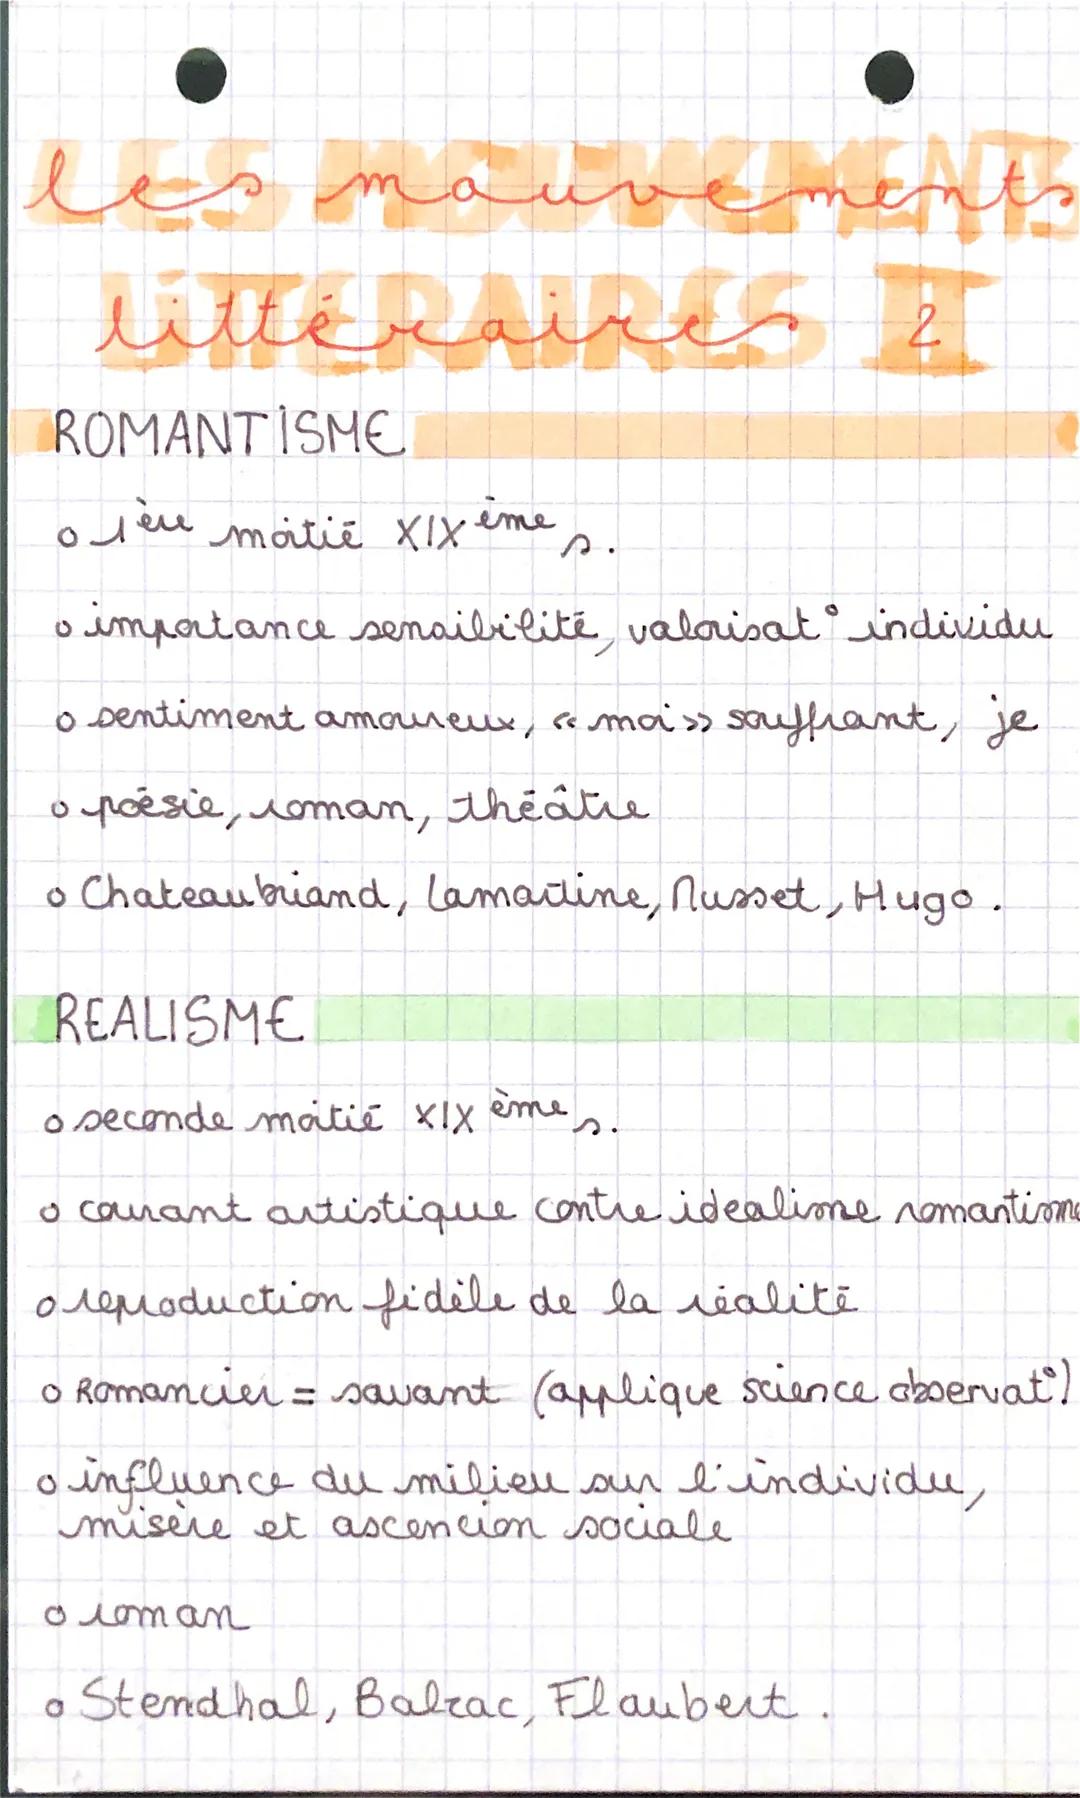 les mouvements
LES MOUVEMENTS
littéraires 2
LITTÉRAIRES II
ROMANTISME
o 1ère moitié XIXème s.
o importance sensibilité, valorisat° individu
o sentiment amoureux, « moi » souffrant, je
o poésie, roman, théâtre
o Chateaubriand, Lamartine, Musset, Hugo.
REALISME
o seconde moitié XIXème s.
o courant artistique contre idealisme romantisme
o reproduction fidèle de la réalité
o Romancier = savant (applique science observat°)
o influence du milieu sur l'individu,
misère et ascencion sociale
o roman
o Stendhal, Balzac, Flaubert.